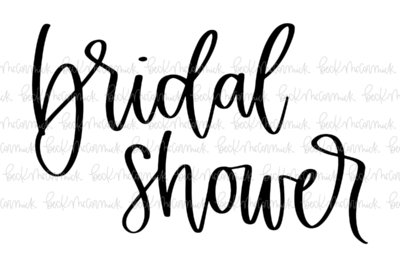 bridal
shower